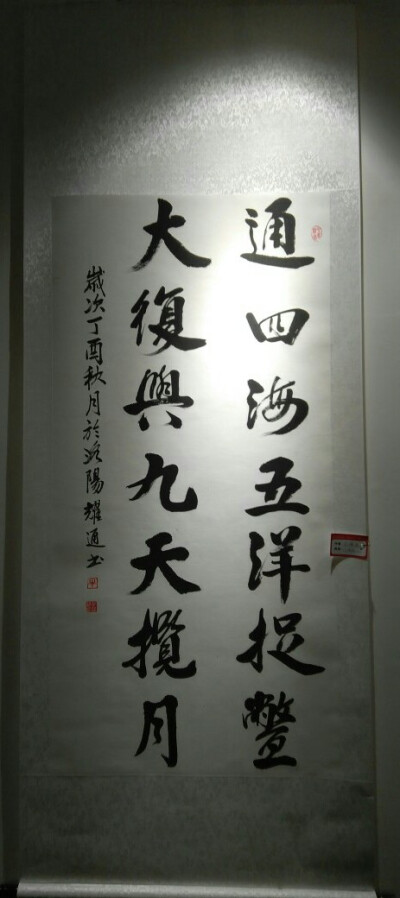 通四海五洋捉鱉
大復興九天攬月
歲次丁酉秋月於洛陽耀通书